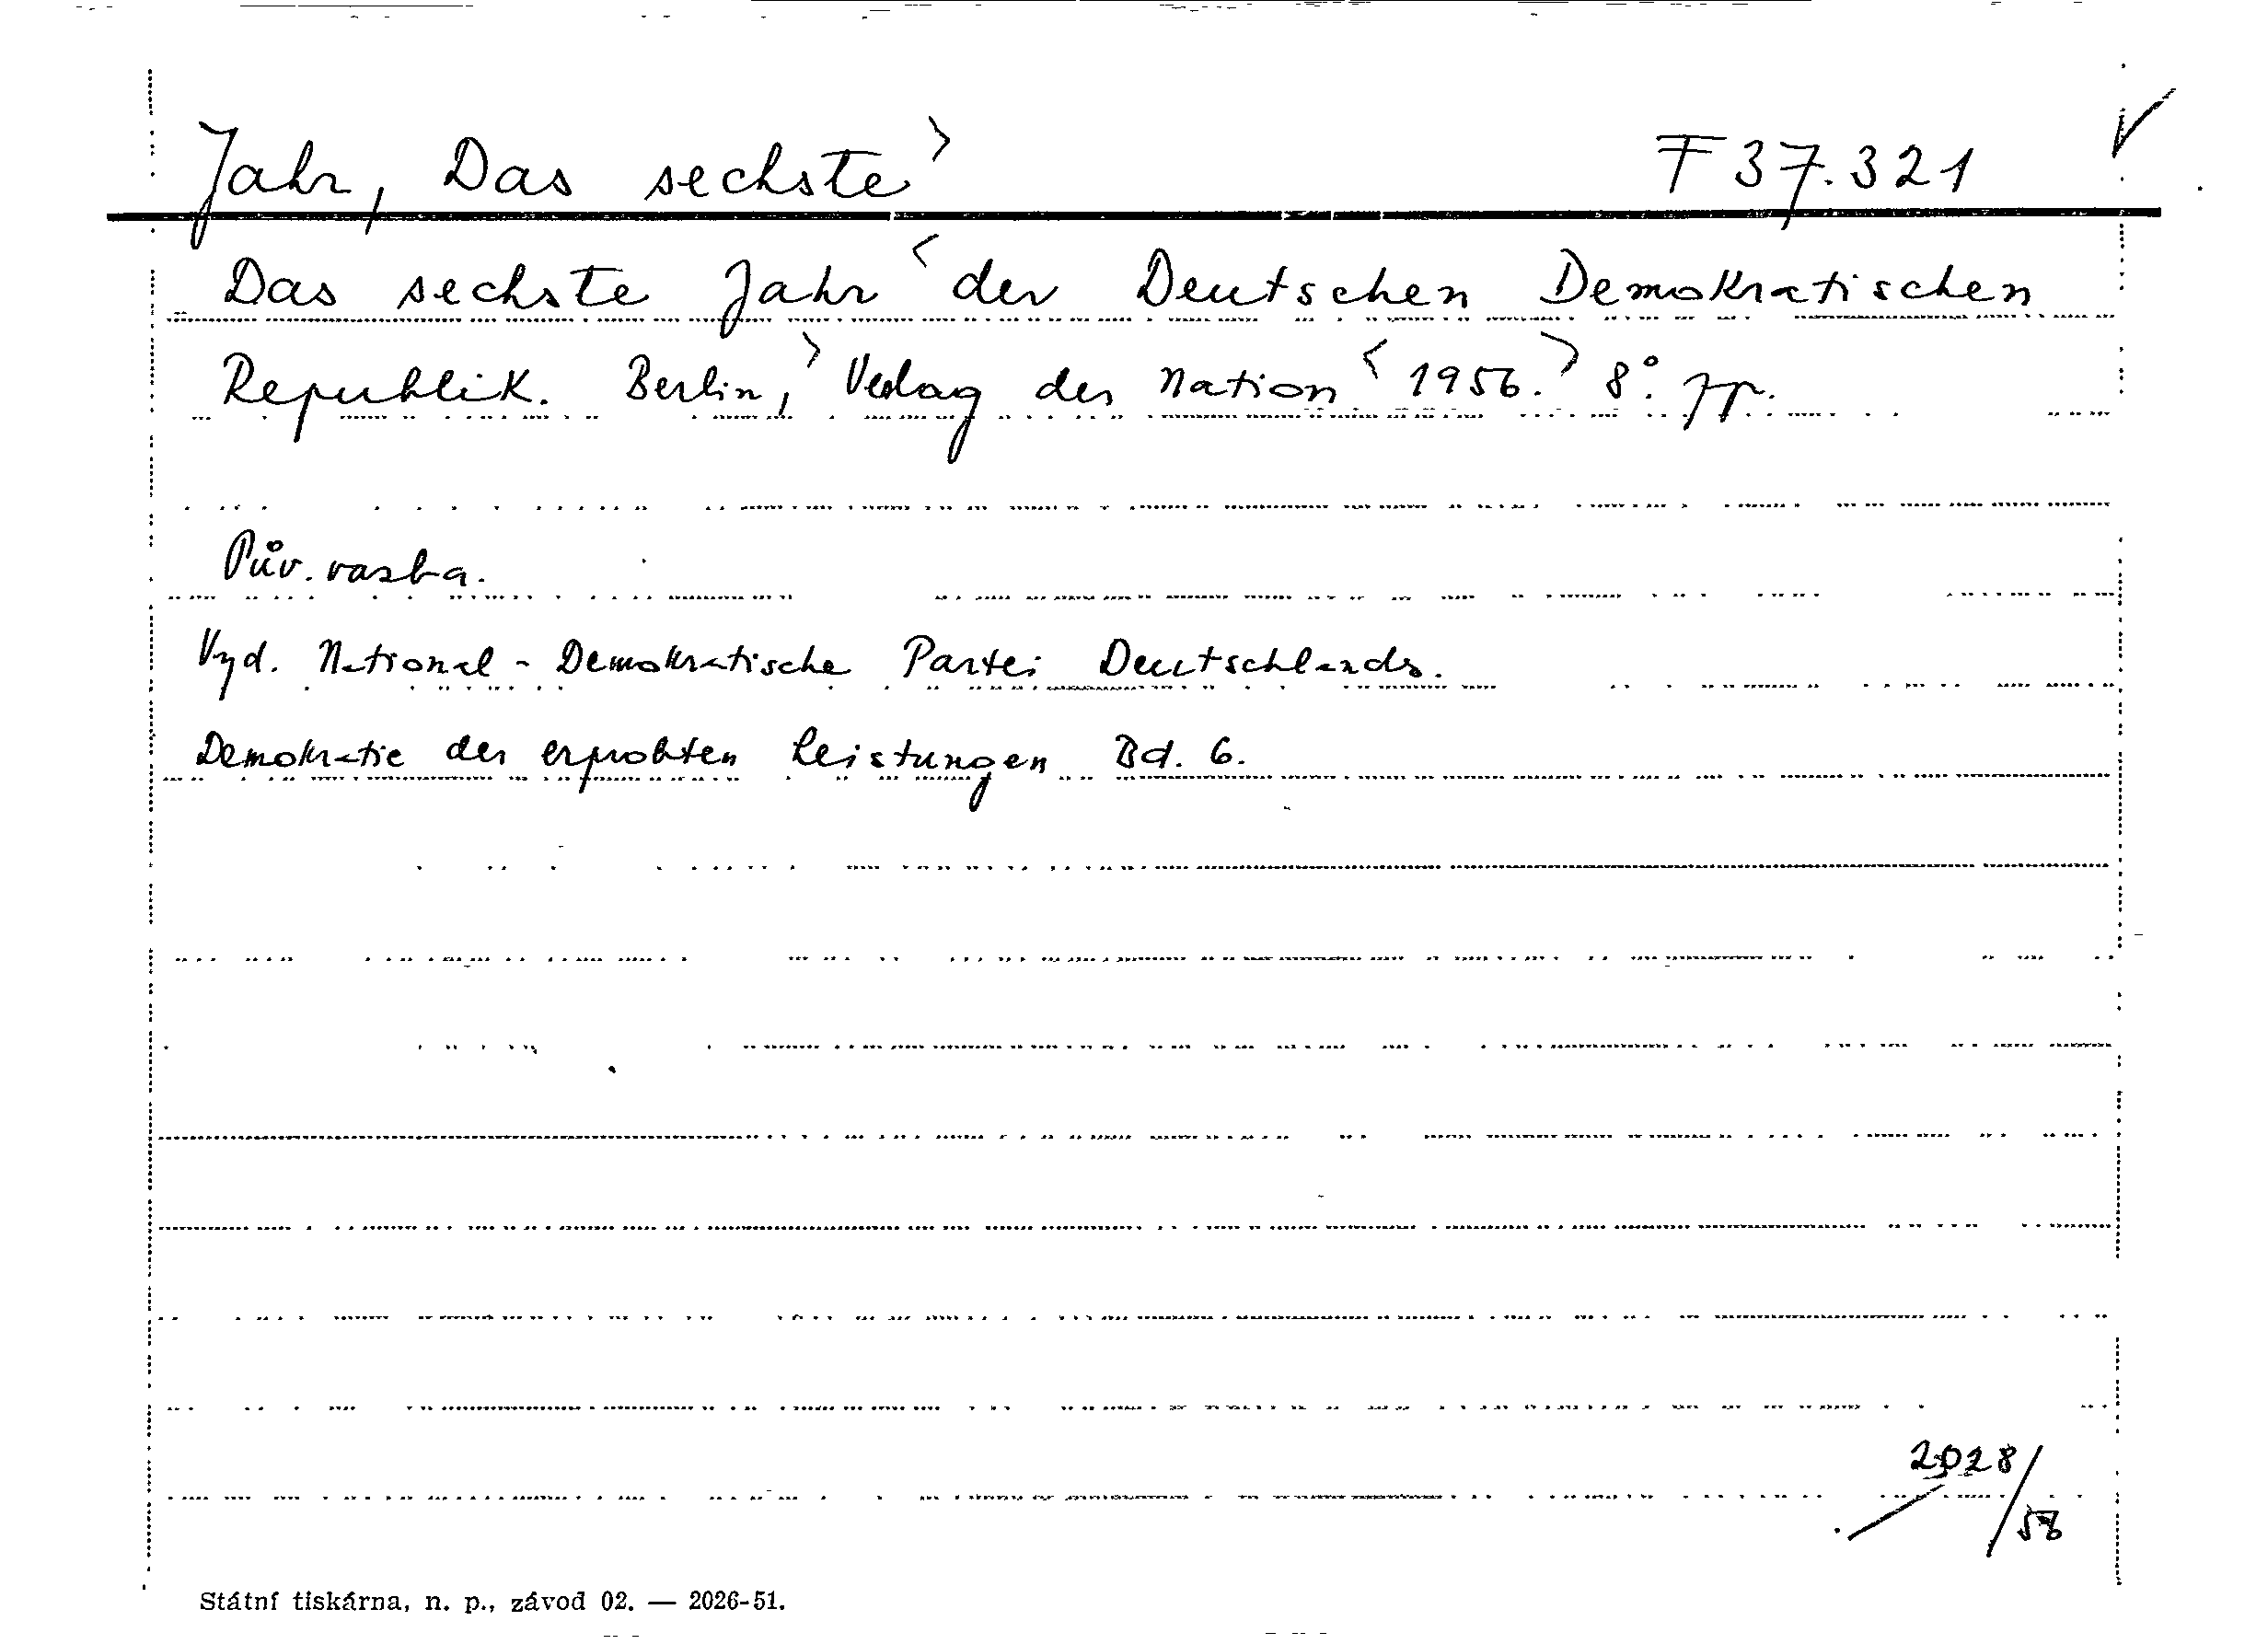 Jahr, Das sechste> F 37.321 √
Das sechste Jahr < der Deutschen Demokratischen
Republik. Berlin, > Verlag der Nation < 1956. > 8°.
Pův. vazba.
Vyd. National-Demokratische Partei Deutschlands.
Demokratie der erprobten Leistungen Bd. 6.
2028/58
Státní tiskárna, n. p., závod 02. — 2026-51.